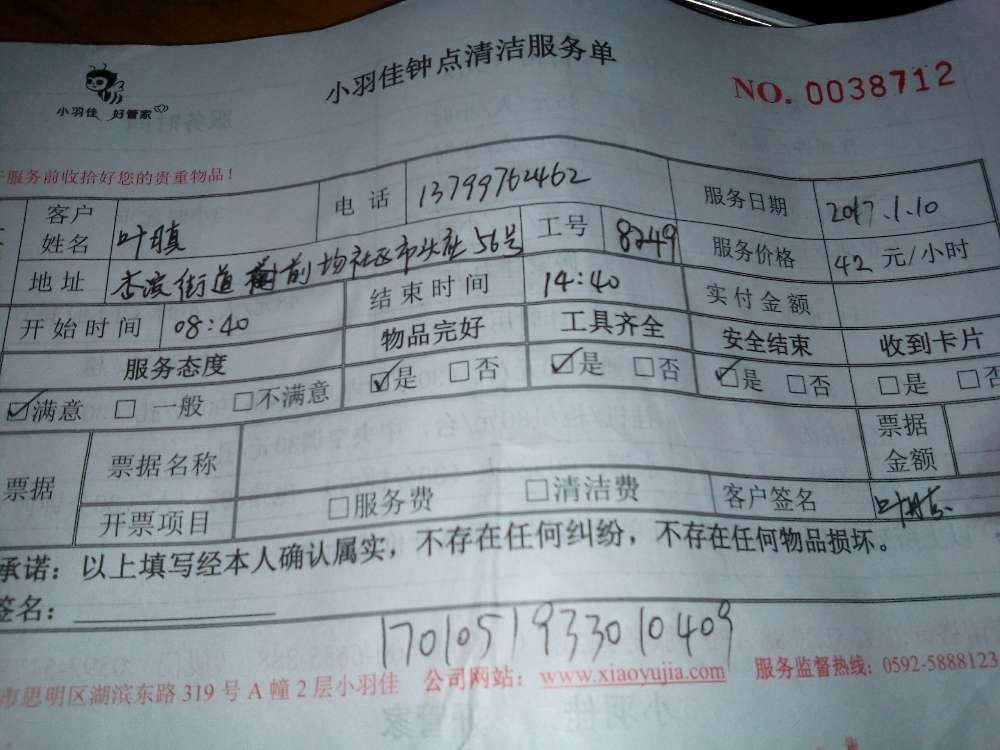 小羽佳 好管家
小羽佳钟点清洁服务单
NO. 0038712
服务前收拾好您的贵重物品！
客户姓名 叶瑱 电话 13799762462 服务日期 2017.1.10
地址 杏滨街道 前场社区市头庄56号 工号 8249 服务价格 42 元/小时
开始时间 08:40 结束时间 14:40 实付金额
服务态度 物品完好 工具齐全 安全结束 收到卡片
☑满意 □一般 □不满意 ☑是 □否 ☑是 □否 ☑是 □否 □是 □否
票据 票据名称 票据金额
开票项目 □服务费 □清洁费 客户签名
承诺：以上填写经本人确认属实，不存在任何纠纷，不存在任何物品损坏。
签名：
1701051933010409
市思明区湖滨东路 319 号 A 幢 2 层小羽佳 公司网站：www.xiaoyujia.com 服务监督热线：0592-5888123